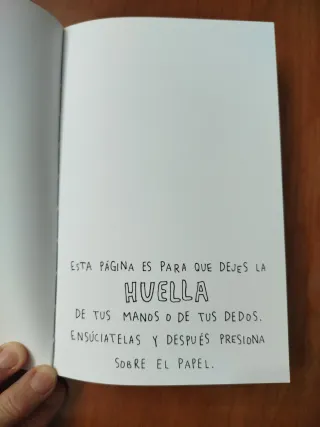 ESTA PÁGINA ES PARA QUE DEJES LA
HUELLA
DE TUS MANOS O DE TUS DEDOS.
ENSÚCIATELAS Y DESPUÉS PRESIONA
SOBRE EL PAPEL.